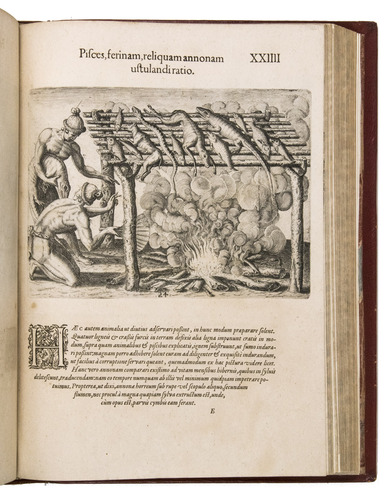 Pisces, ferinam, reliquam annonam XXIIII
ustulandi ratio.
24
HÆc autem animalia ut diutius adservari possint, in hunc modum præparare solent.
Quatuor ligneis & crassis furcis in terram defixis alia ligna imponunt cratis in mo-
dum: supra quam animalibus & piscibus explicatis, ignem substruunt, ut fumo indura-
ri possint: magnam porro adhibere solent curam ad diligenter & exquisitè indurandum,
ut facilius à corruptione serventur, quemadmodum ex hac pictura videre licet.
Hanc vero annonam comparari existimo ad vitam mensibus hibernis, quibus in sylvis
delitescunt, traducendam: nam eo tempore numquam ab illis vel minimum quidquam impetrare po-
tuimus. Propterea, ut dixi, annona horreum sub rupe vel scopulo aliquo, secundum
flumen, nec procul à magna quapiam sylva extructum est, unde,
cum opus est, parvis cymbis eam ferant.
E